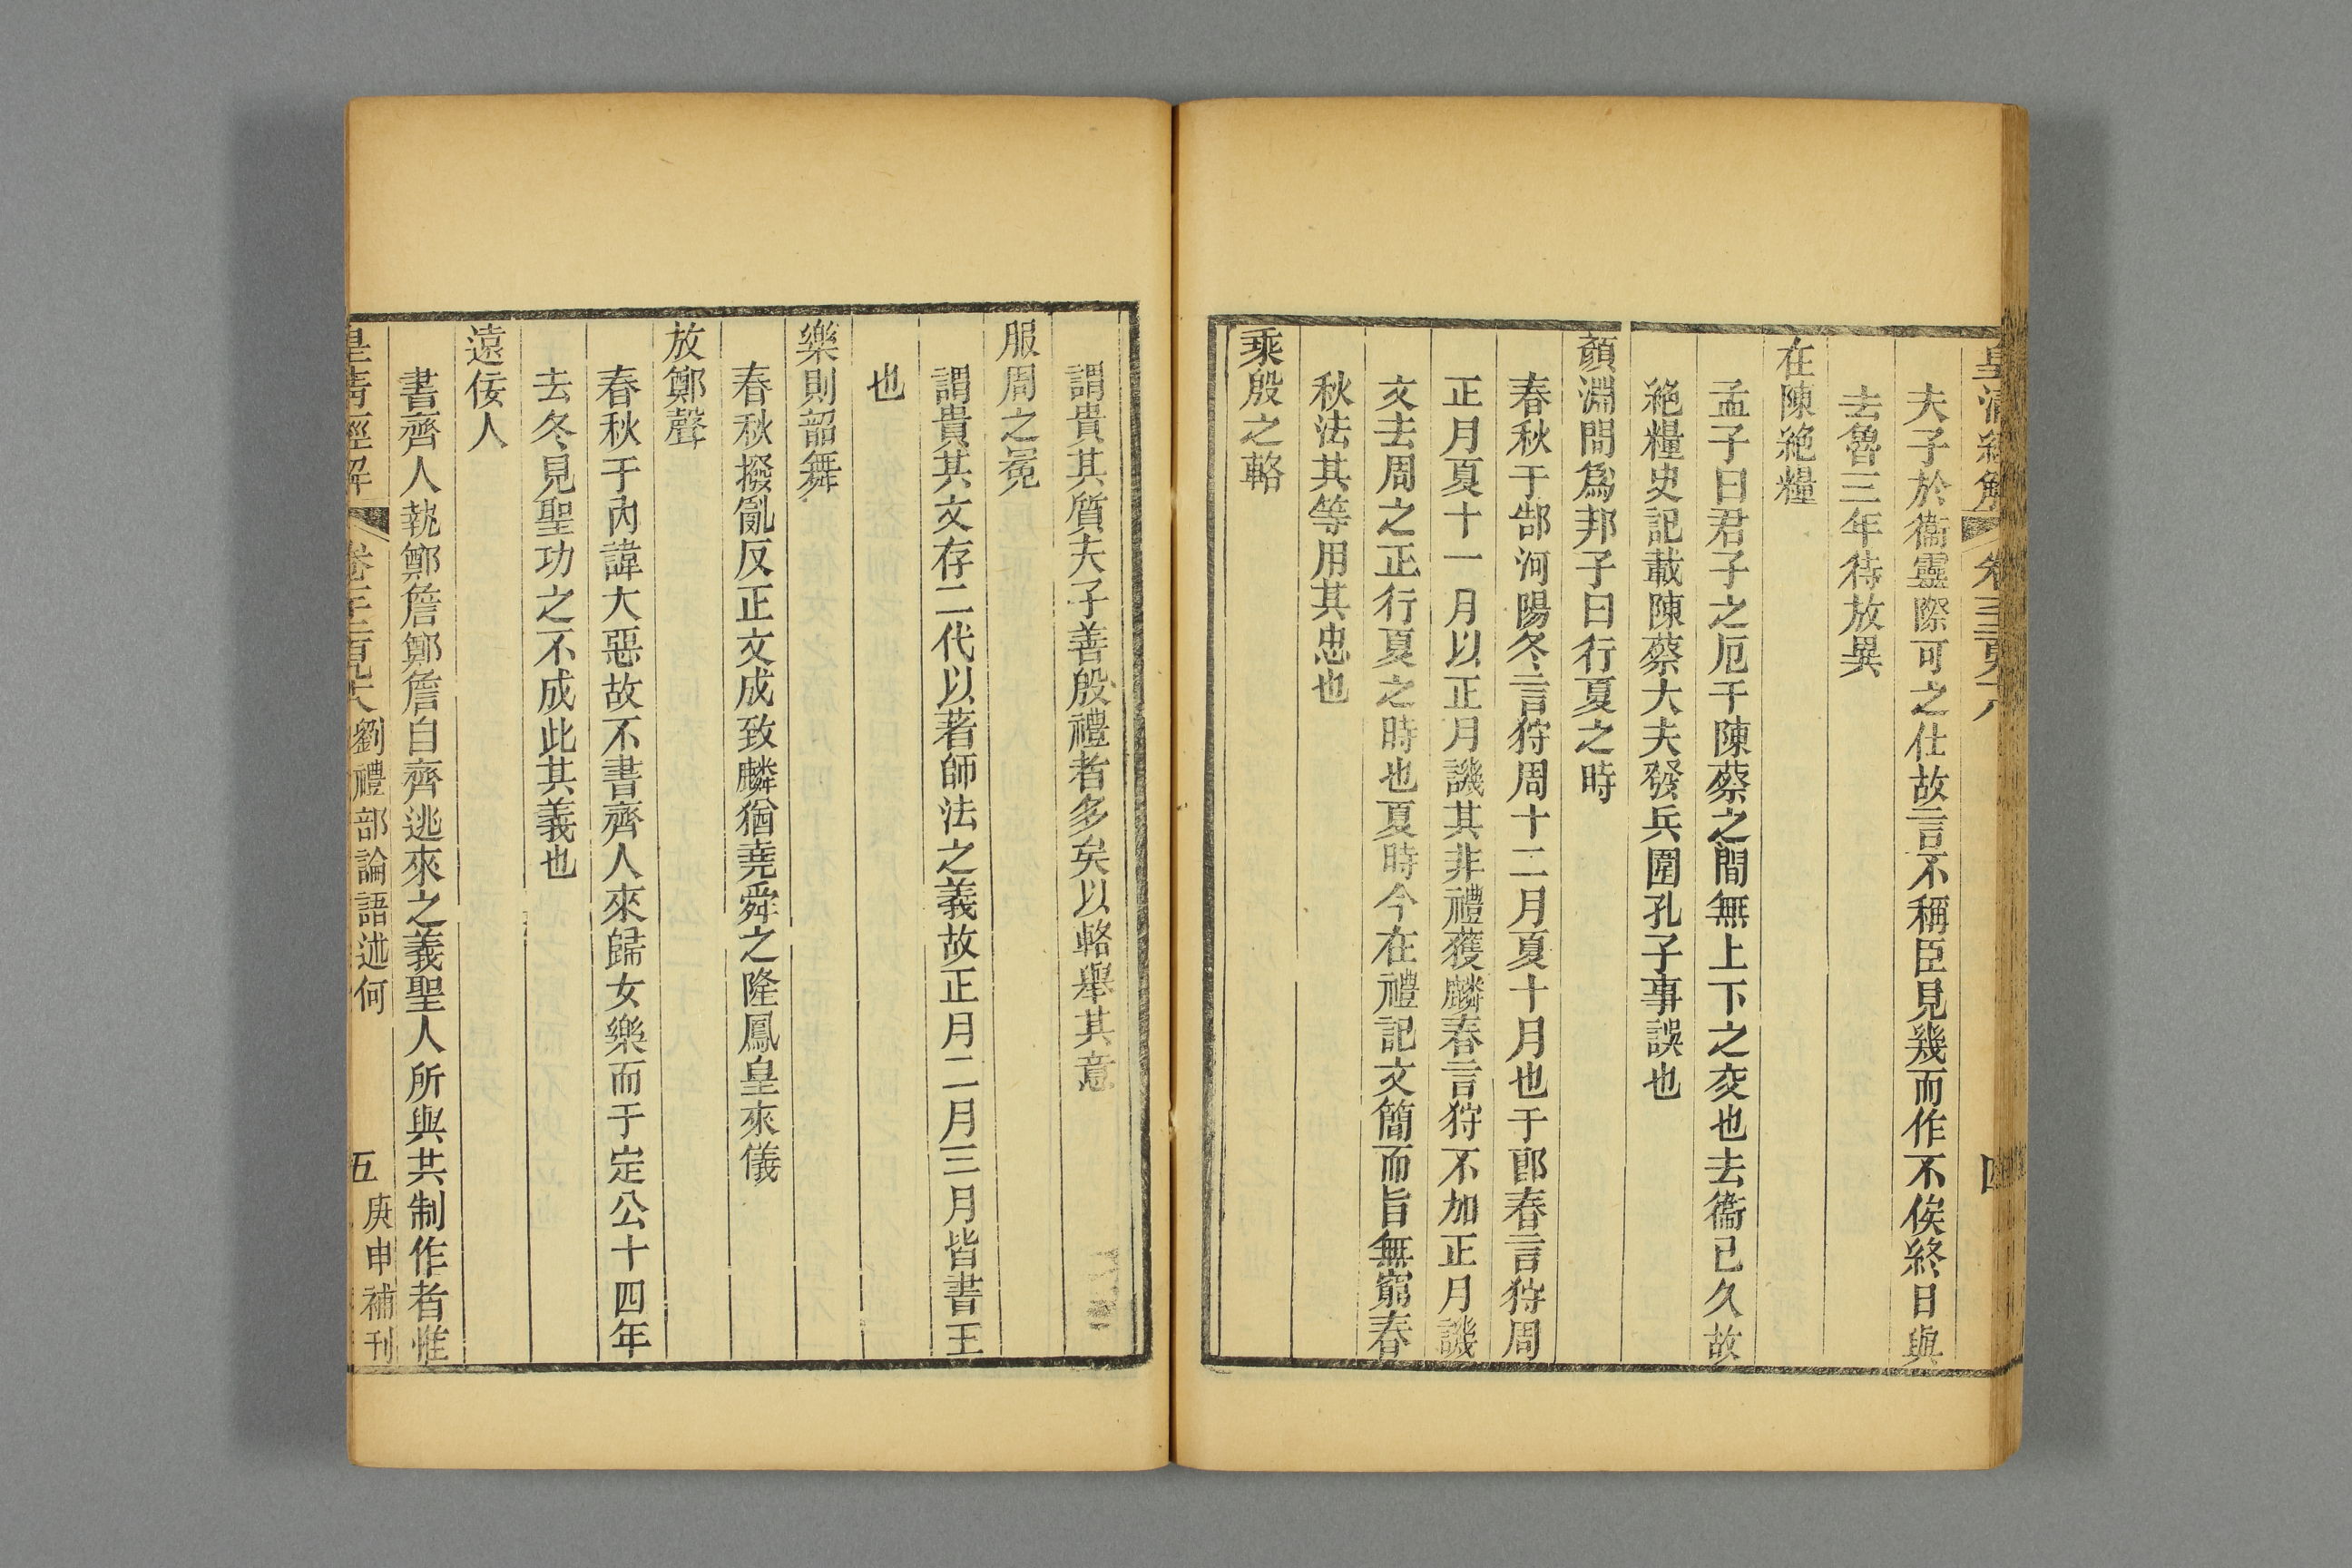 皇清經解 卷千二百九十八 四
夫子於衞靈際可之仕故言不稱臣見幾而作不俟終日與
去魯三年待放異
在陳絶糧
孟子曰君子之厄于陳蔡之間無上下之交也去衞已久故
絶糧史記載陳蔡大夫發兵圍孔子事誤也
顏淵問爲邦子曰行夏之時
春秋于郜河陽冬言狩周十二月夏十月也于郎春言狩周
正月夏十一月以正月譏其非禮獲麟春言狩不加正月譏
文去周之正行夏之時也夏時今在禮記文簡而旨無窮春
秋法其等用其忠也
乘殷之輅
謂貴其質夫子善殷禮者多矣以輅舉其意
服周之冕
謂貴其文存二代以著師法之義故正月二月三月皆書王
也
樂則韶舞
春秋撥亂反正文成致麟猶堯舜之隆鳳皇來儀
放鄭聲
春秋于內諱大惡故不書齊人來歸女樂而于定公十四年
去冬見聖功之不成此其義也
遠佞人
書齊人執鄭詹鄭詹自齊逃來之義聖人所與共制作者惟
皇清經解 卷千二百九十八 劉禮部論語述何 五 庚申補刊